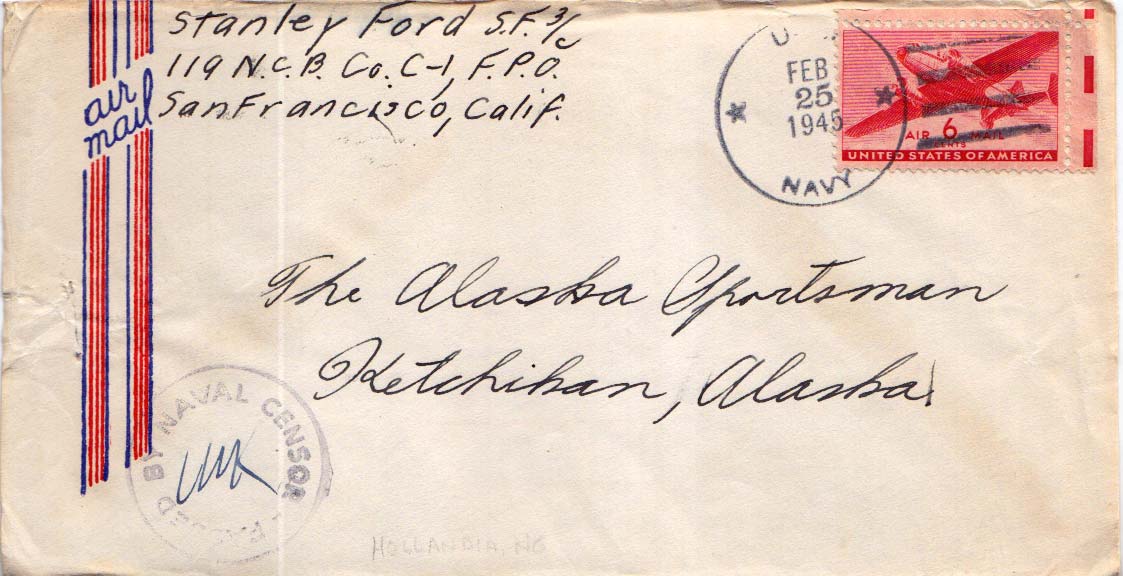 Stanley Ford S.F. 3/c
119 N.C.B. Co. C-1, F.P.O.
San Francisco, Calif.
air
mail
U.S.
FEB
25
1945
NAVY
AIR 6 MAIL
CENTS
UNITED STATES OF AMERICA
The Alaska Sportsman
Ketchikan, Alaska
PASSED BY NAVAL CENSOR
HOLLANDIA, NG